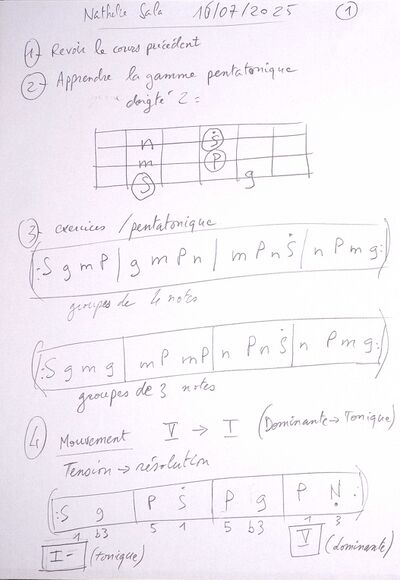 Nathalie Sala 16/07/2025 1
1- Revoir le cours précédent
2- Apprendre la gamme pentatonique
doigté 2 :
n Ṡ
m P
S g
3- exercices / pentatonique
(:S g m P | g m P n | m P n Ṡ | n P m g:)
groupes de 4 notes
(|:S g m g | m P m P | n P n Ṡ | n P m g:)
groupes de 3 notes
4 Mouvement V → I (Dominante → Tonique)
Tension → résolution
(:S g | P Ṡ | P g | P Ṇ :)
1 b3 5 1 5 b3 1 3
I- (tonique) V (dominante)